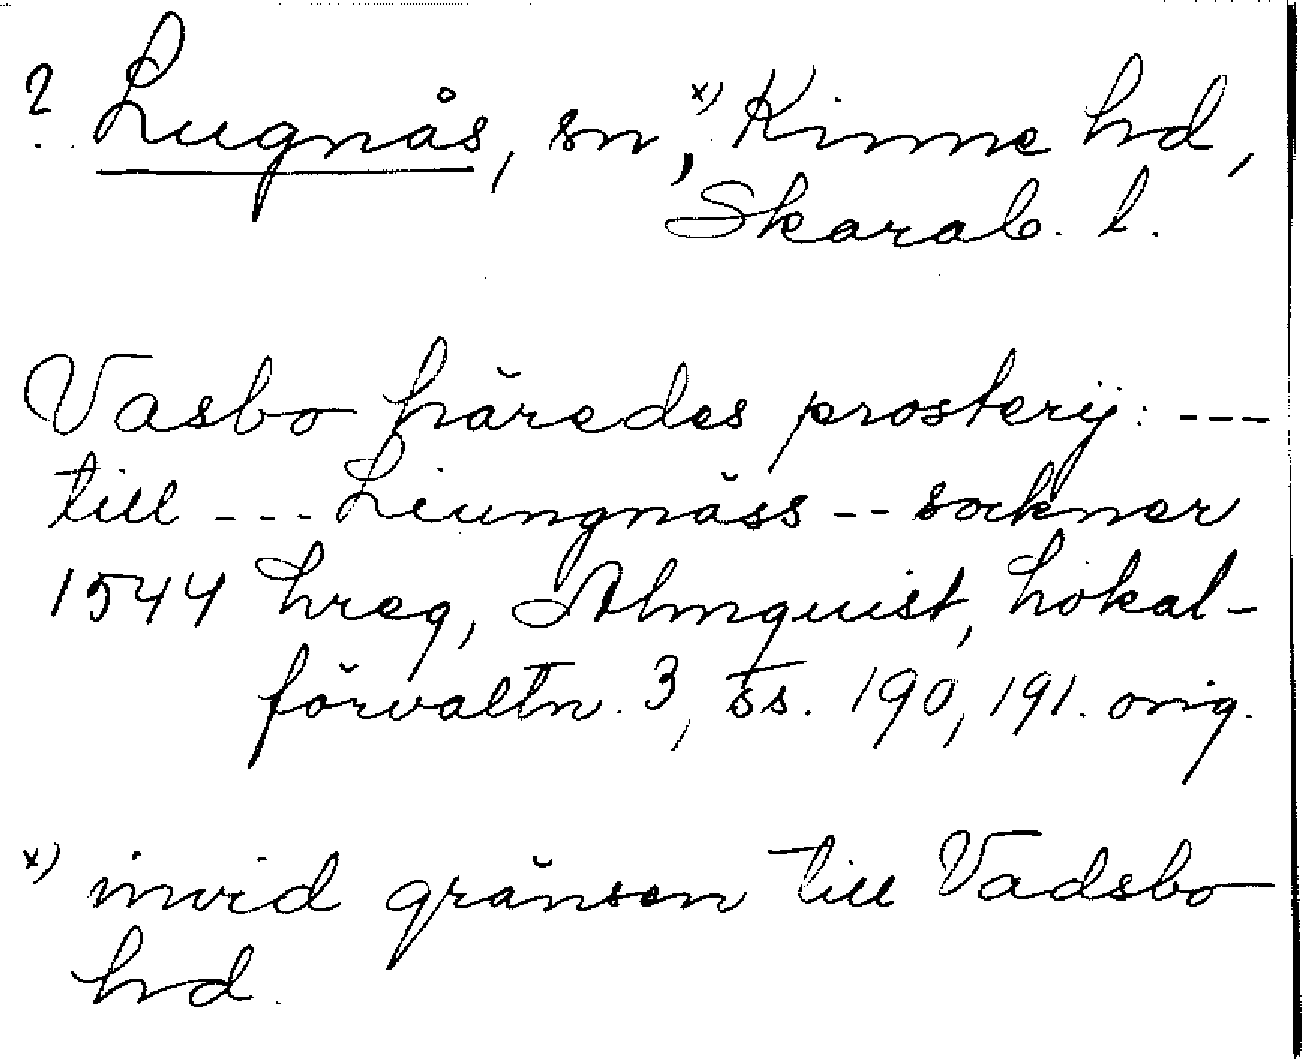 ? Lugnås, sn,ˣ⁾ Kinne hd,
Skarab. l.
Vasbo häredes prosterij: ---
till --- Liungnäss -- soknar
1544 hreg, Almquist, Lokal-
förvaltn. 3, ss. 190, 191. orig.
x) invid gränsen till Vadsbo
hd.